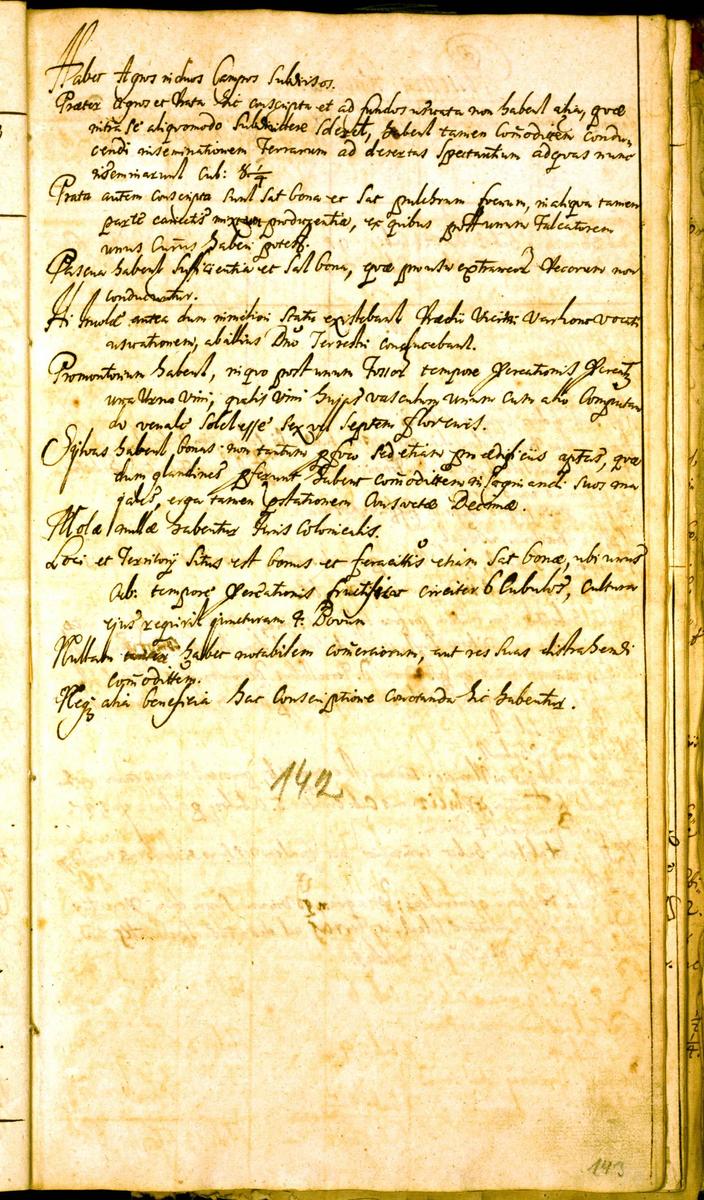 Habet Agros in duos Campos Subdivisos.
Præter Agros et Prata hic conscripta et ad fundos usuata non habent alia, quæ
intra se aliquomodo Subdividere Solerent, habent tamen Comoditatem Condu-
cendi inseminationem Terrarum ad desertas Spectantium adeqvas nunc
inseminarunt Cub:
Prata autem conscripta Sunt Sat bona et Sat pulchrum foenum, in aliqva tamen
parte producentia, ex quibus post unum Falcatorem
unus Currus haberi potest.
Pascua habent Sufficientia et Sat bona, quæ Pecorum non
conducuntur.
Hi Incolæ antea dum in meliori Statu existebant Prædii Vicini Varhono vocati
usuationem, ab illius Dno Terrestri conducebant.
Promontorium habent, in quo post unum Fossorem tempore Procreationis
una Urna Vini, qualis Vini hujas vasculum unum cum alio Computan
do venale Solet esse Sex vel Septem florenis.
Sylvas habent bonas non tantum pro foco Sed etiam pro ædificiis aptas, quæ
dum glandines proferunt habent comoditatem inSaginandi Suos ma
jales, erga tamen præstationem Consvetæ Decimæ.
Molæ nullæ habentur Juris Colonicalis.
Loci et Territorij Situs est bonus et feracitatis etiam Sat bonæ, ubi unus
Cub: tempore Procreationis fructificat circiter 6 Cubulos, Cultura
ejus requirit juncturam 4: Boum
Nullam habet notabilem comerciorum, aut res Suas distrahendi
comoditatem.
Neq alia beneficia hac Conscriptione connotanda hic habentur.
142
143